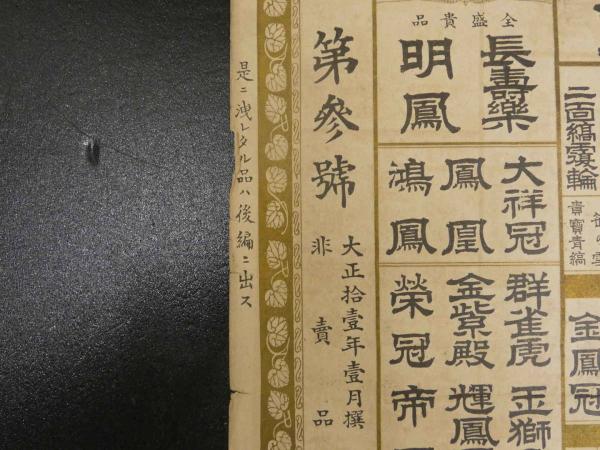 全盛貴品
長壽樂
明鳳
大祥冠
鳳凰
鴻鳳
群雀虎
金紫殿
榮冠
玉獅
輝鳳
帝
二面縞覆輪
貴寶青縞
金鳳冠
第參號
大正拾壹年壹月撰
非賣品
是ニ洩レタル品ハ後編ニ出ス